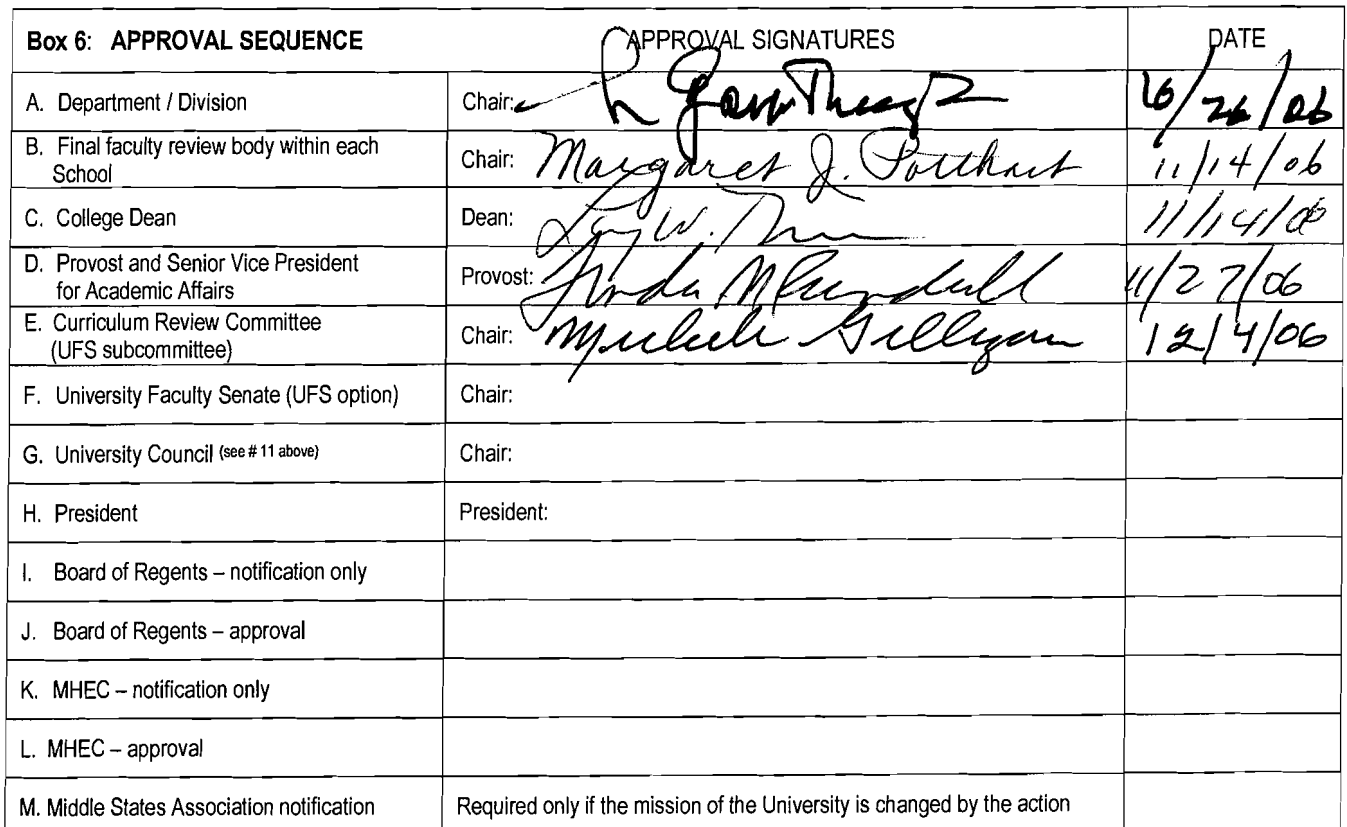 Box 6: APPROVAL SEQUENCE APPROVAL SIGNATURES DATE
A. Department / Division Chair: /26/06
B. Final faculty review body within each
School Chair: Margaret J. Potthast 11/14/06
C. College Dean Dean: W. 11/14/06
D. Provost and Senior Vice President
for Academic Affairs Provost: 11/27/06
E. Curriculum Review Committee
(UFS subcommittee) Chair: Gilligan 12/4/06
F. University Faculty Senate (UFS option) Chair:
G. University Council (see # 11 above) Chair:
H. President President:
I. Board of Regents – notification only
J. Board of Regents – approval
K. MHEC – notification only
L. MHEC – approval
M. Middle States Association notification Required only if the mission of the University is changed by the action